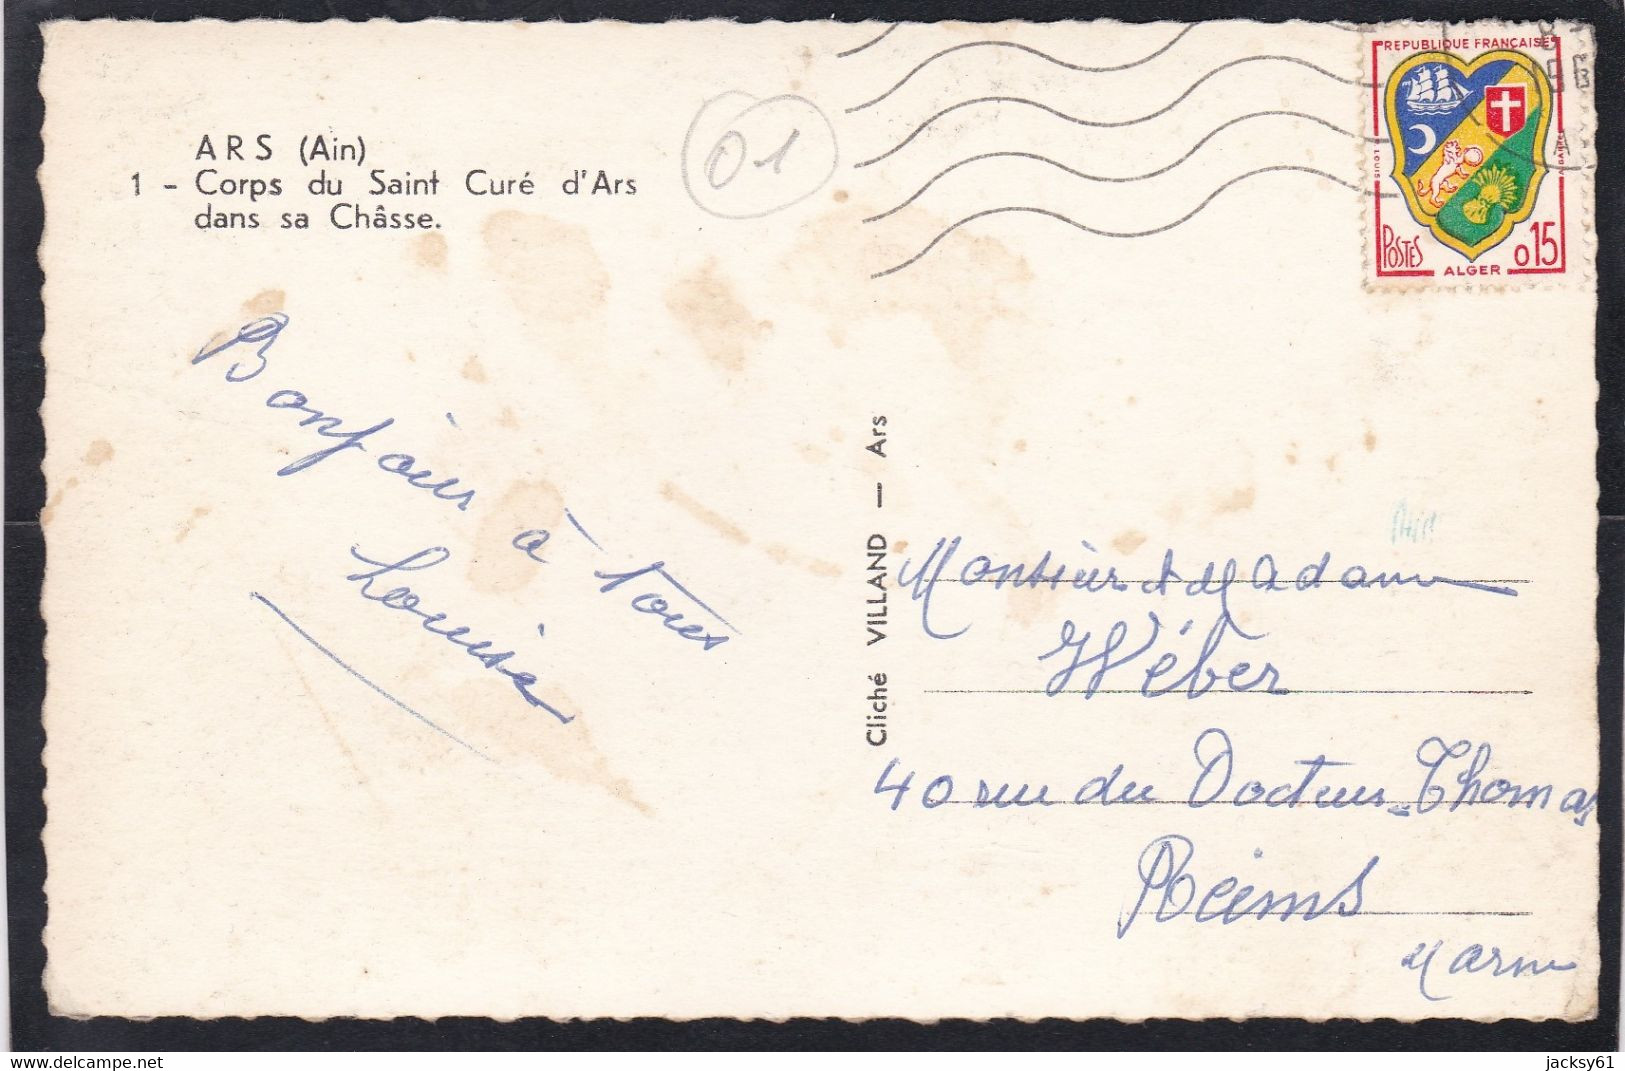 ARS (Ain)
1 - Corps du Saint Curé d'Ars
dans sa Châsse.
01
REPUBLIQUE FRANÇAISE
POSTES
ALGER
0,15
Bonjour à tous
Louise
Cliché VILLAND — Ars
Monsieur et Madame
Wéber
40 rue du Docteur Thomas
Reims
Marne
delcampe.net
jacksy61